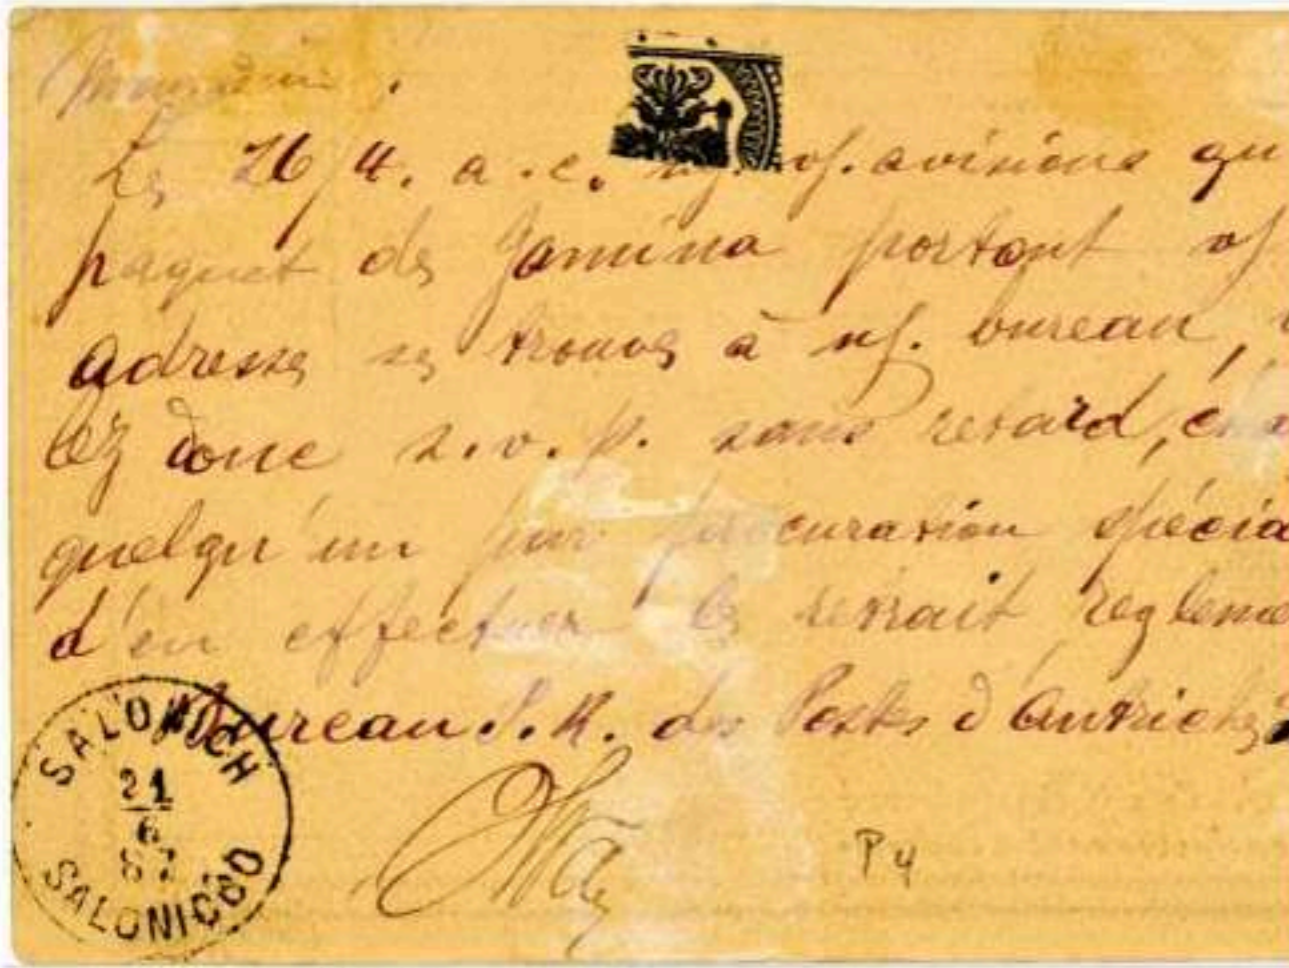 Le 26/4. a.c. nf. vf. avisions qu
paquet de Jannina portant vf
adresse se trouve à nf. bureau,
lez donc s.v.p. sans retard,
quelqu'un par procuration spécia
d'en effectuer le retrait regleme
Bureau I.R. des Postes d'Autriche
SALONICH
21
6
87
SALONICCO
P4